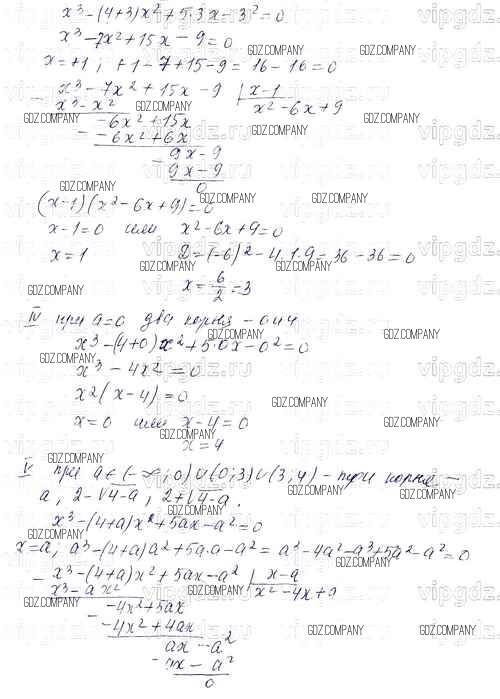 x³-(4+3)x²+5·3x-3²=0
x³-7x²+15x-9=0
x=+1; +1-7+15-9=16-16=0
x³-7x²+15x-9 | x-1
x³-x² x²-6x+9
-6x²+15x
-6x²+6x
9x-9
9x-9
0
(x-1)(x²-6x+9)=0
x-1=0 или x²-6x+9=0
x=1 D=(-6)²-4·1·9=36-36=0
x=6/2=3
IV при a=0 два корня - 0 и 4
x³-(4+0)x²+5·0x-0²=0
x³-4x²=0
x²(x-4)=0
x=0 или x-4=0
x=4
V при a∈(-∞;0)∪(0;3)∪(3;4) - три корня -
a, 2-√4-a; 2+√4-a.
x³-(4+a)x²+5ax-a²=0
x=a; a³-(4+a)a²+5a·a-a²=a³-4a²-a³+5a²-a²=0
x³-(4+a)x²+5ax-a² | x-a
x³-ax² x²-4x+a
-4x²+5ax
-4x²+4ax
ax-a²
ax-a²
0
GDZ.COMPANY
vipgdz.ru